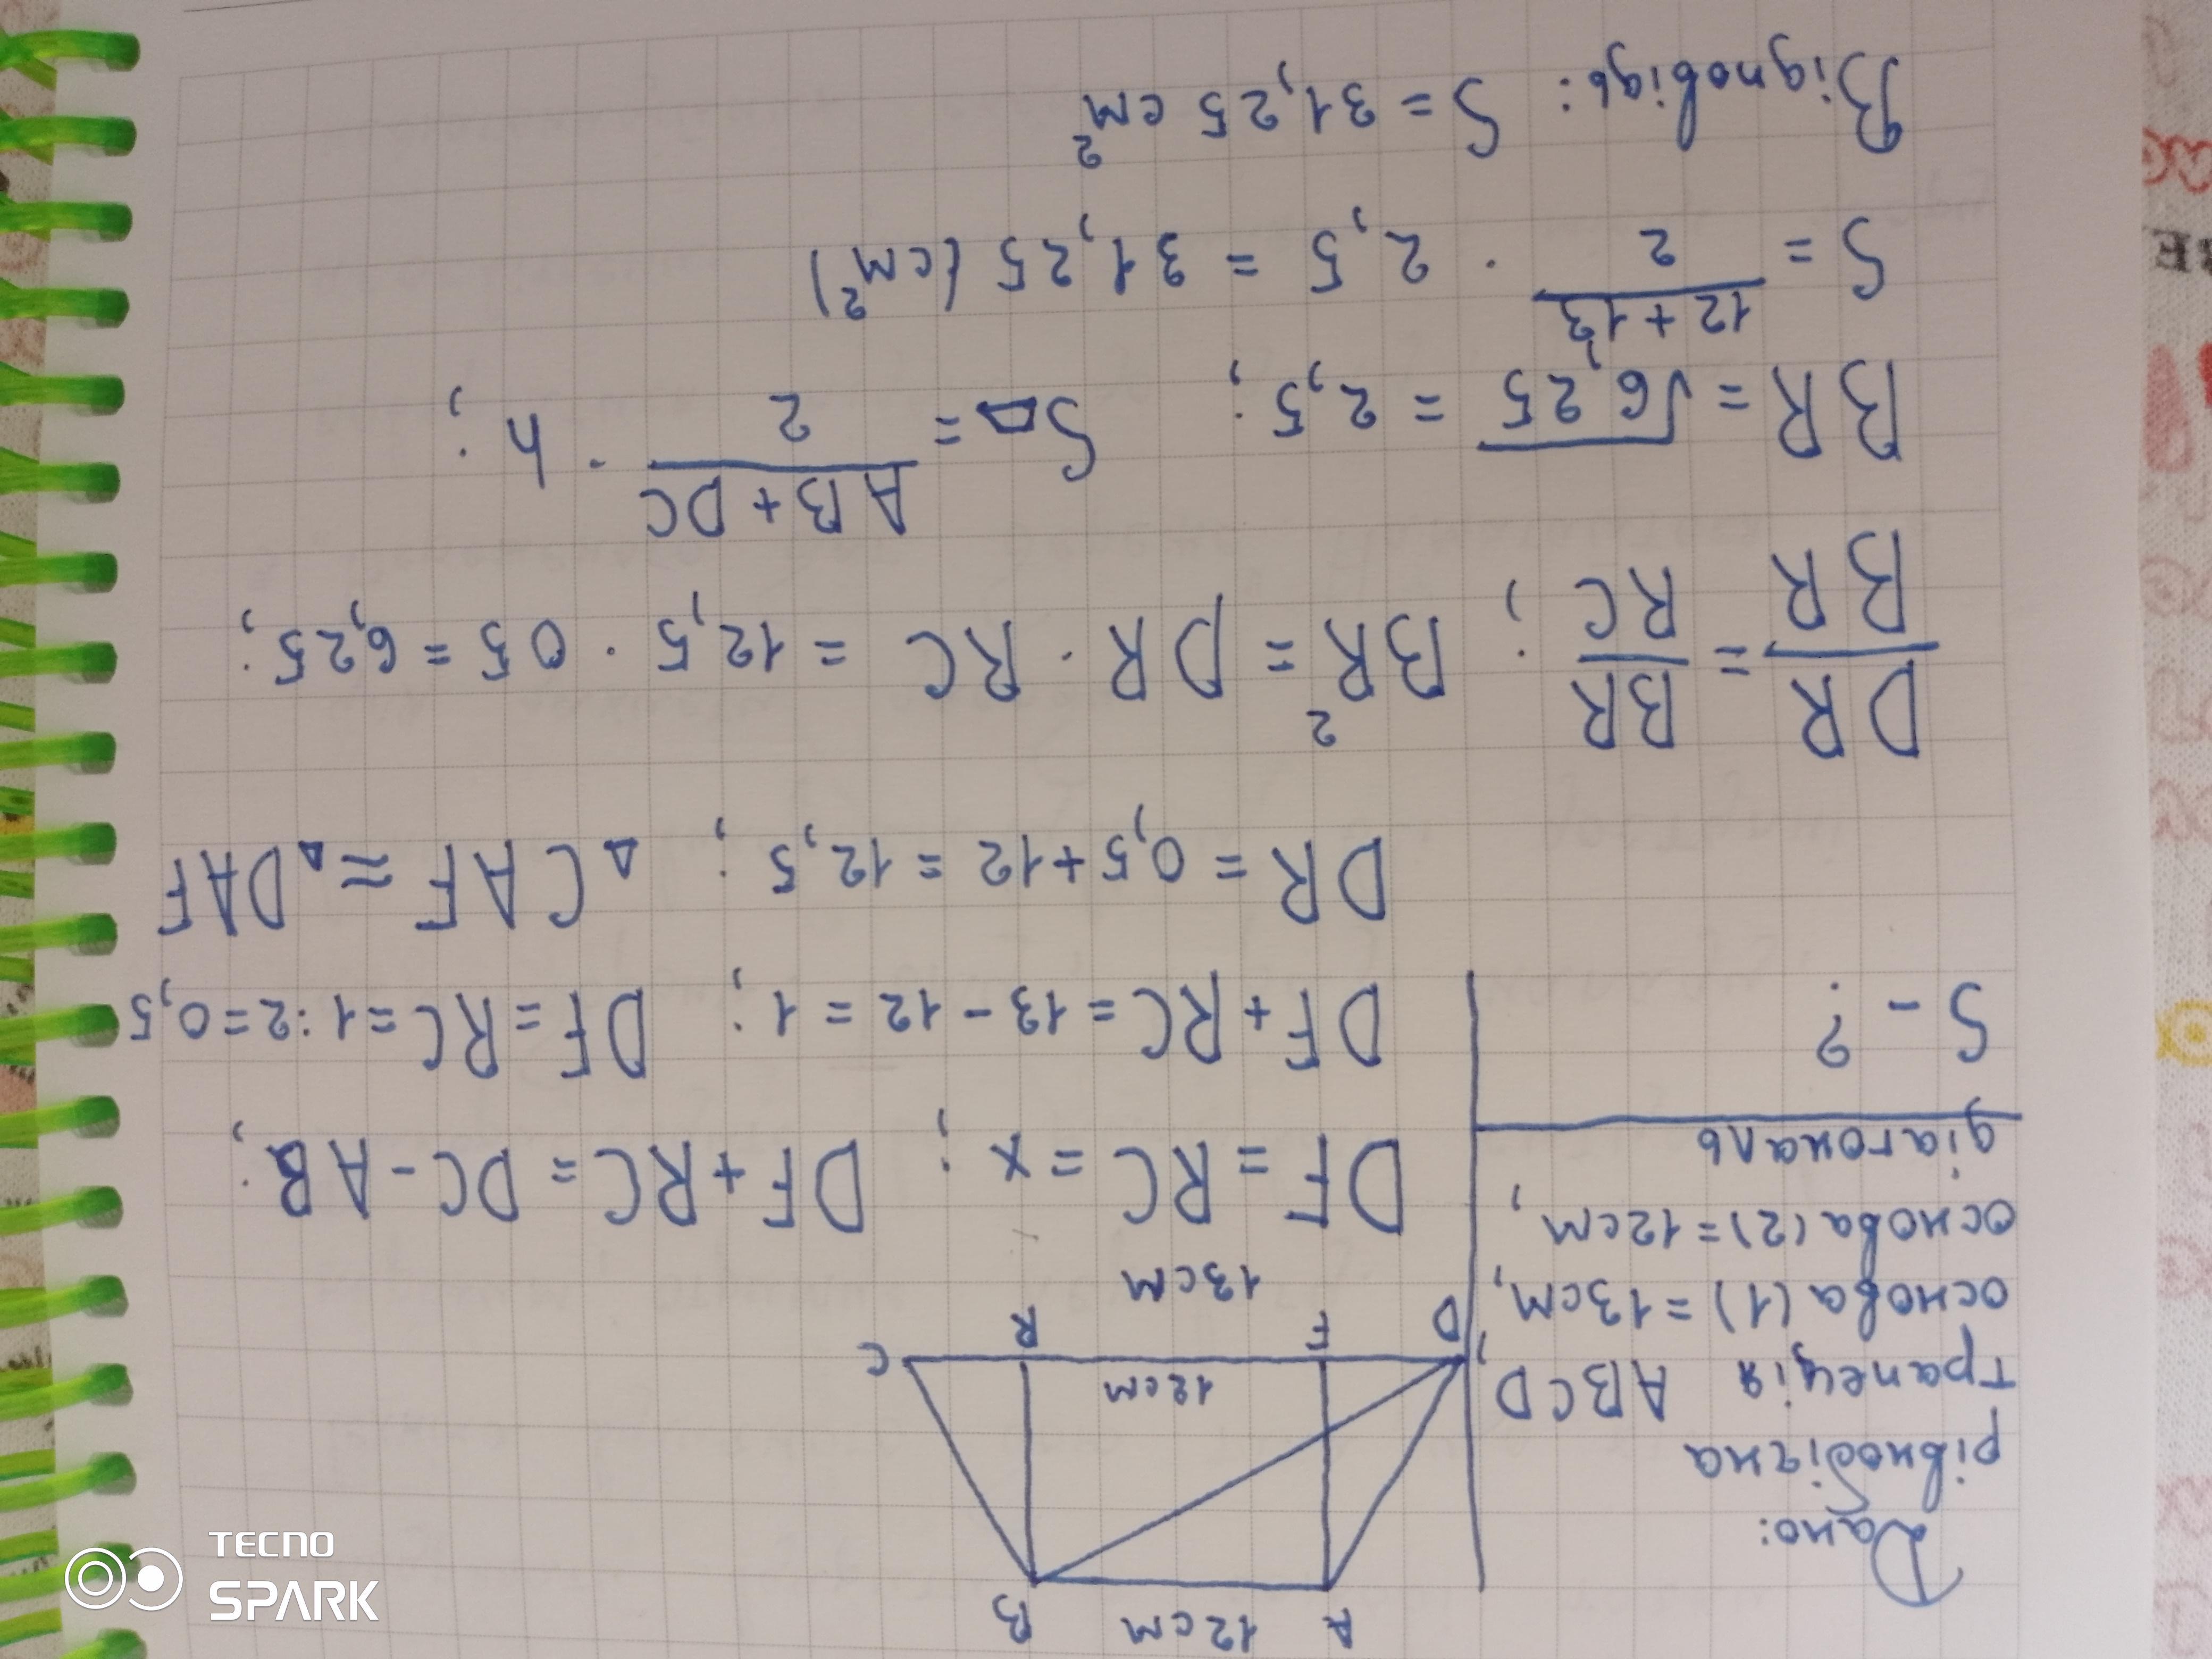 Дано:
рівнобічна
трапеція ABCD,
основа (1) = 13см,
основа (2) = 12см,
діагональ
S - ?
A 12см B
12см
D F R C
13см
DF = RC = x; DF + RC = DC - AB;
DF + RC = 13 - 12 = 1; DF = RC = 1 : 2 = 0,5
DR = 0,5 + 12 = 12,5; △CAF ≈ △DAF
DR/BR = BR/RC; BR² = DR · RC = 12,5 · 05 = 6,25;
BR = √6,25 = 2,5; S▱ = AB + DC/2 · h;
S = 12 + 13/2 · 2,5 = 31,25 (см²)
Відповідь: S = 31,25 см²
TECNO
SPARK